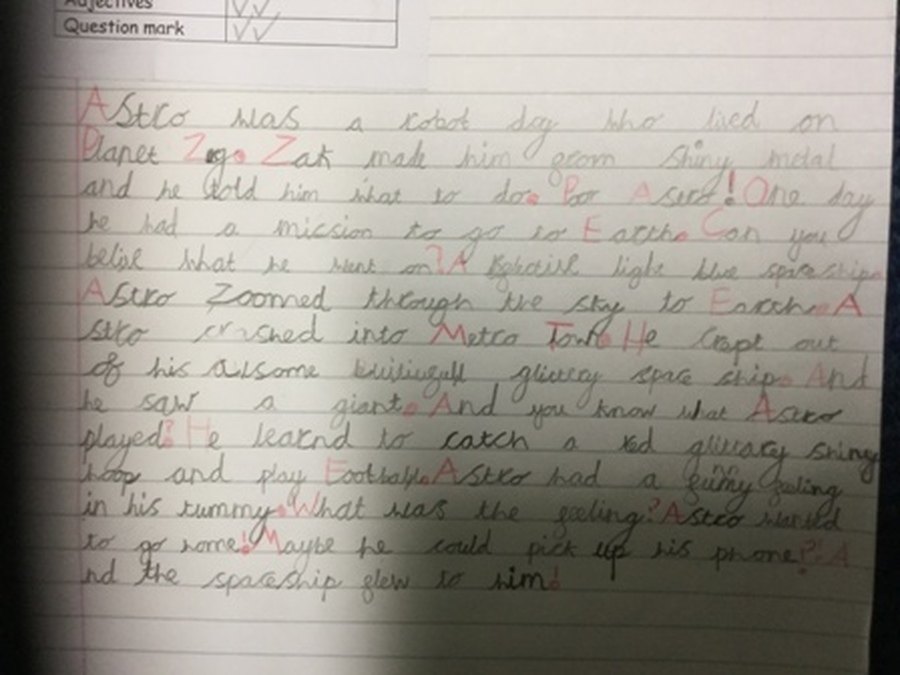 Adjectives
Question mark
Astro was a robot dog who lived on
Planet Zogo. Zak made him from shiny metal
and he told him what to do. Poor Astro! One day
he had a mission to go to Earth. Can you
what he went on? A light blue spaceship.
Astro Zoomed through the sky to Earth. A
stro crashed into Metro Town. He Crept out
of his glittery space ship. And
he saw a giant. And you know what Astro
played? He learnd to catch a red glittary shiny
hoop and play Football. Astro had a funny feeling
in his tummy. What was the feeling? Astro wanted
to go home! Maybe he could pick up his phone? A
nd the spaceship flew to him!